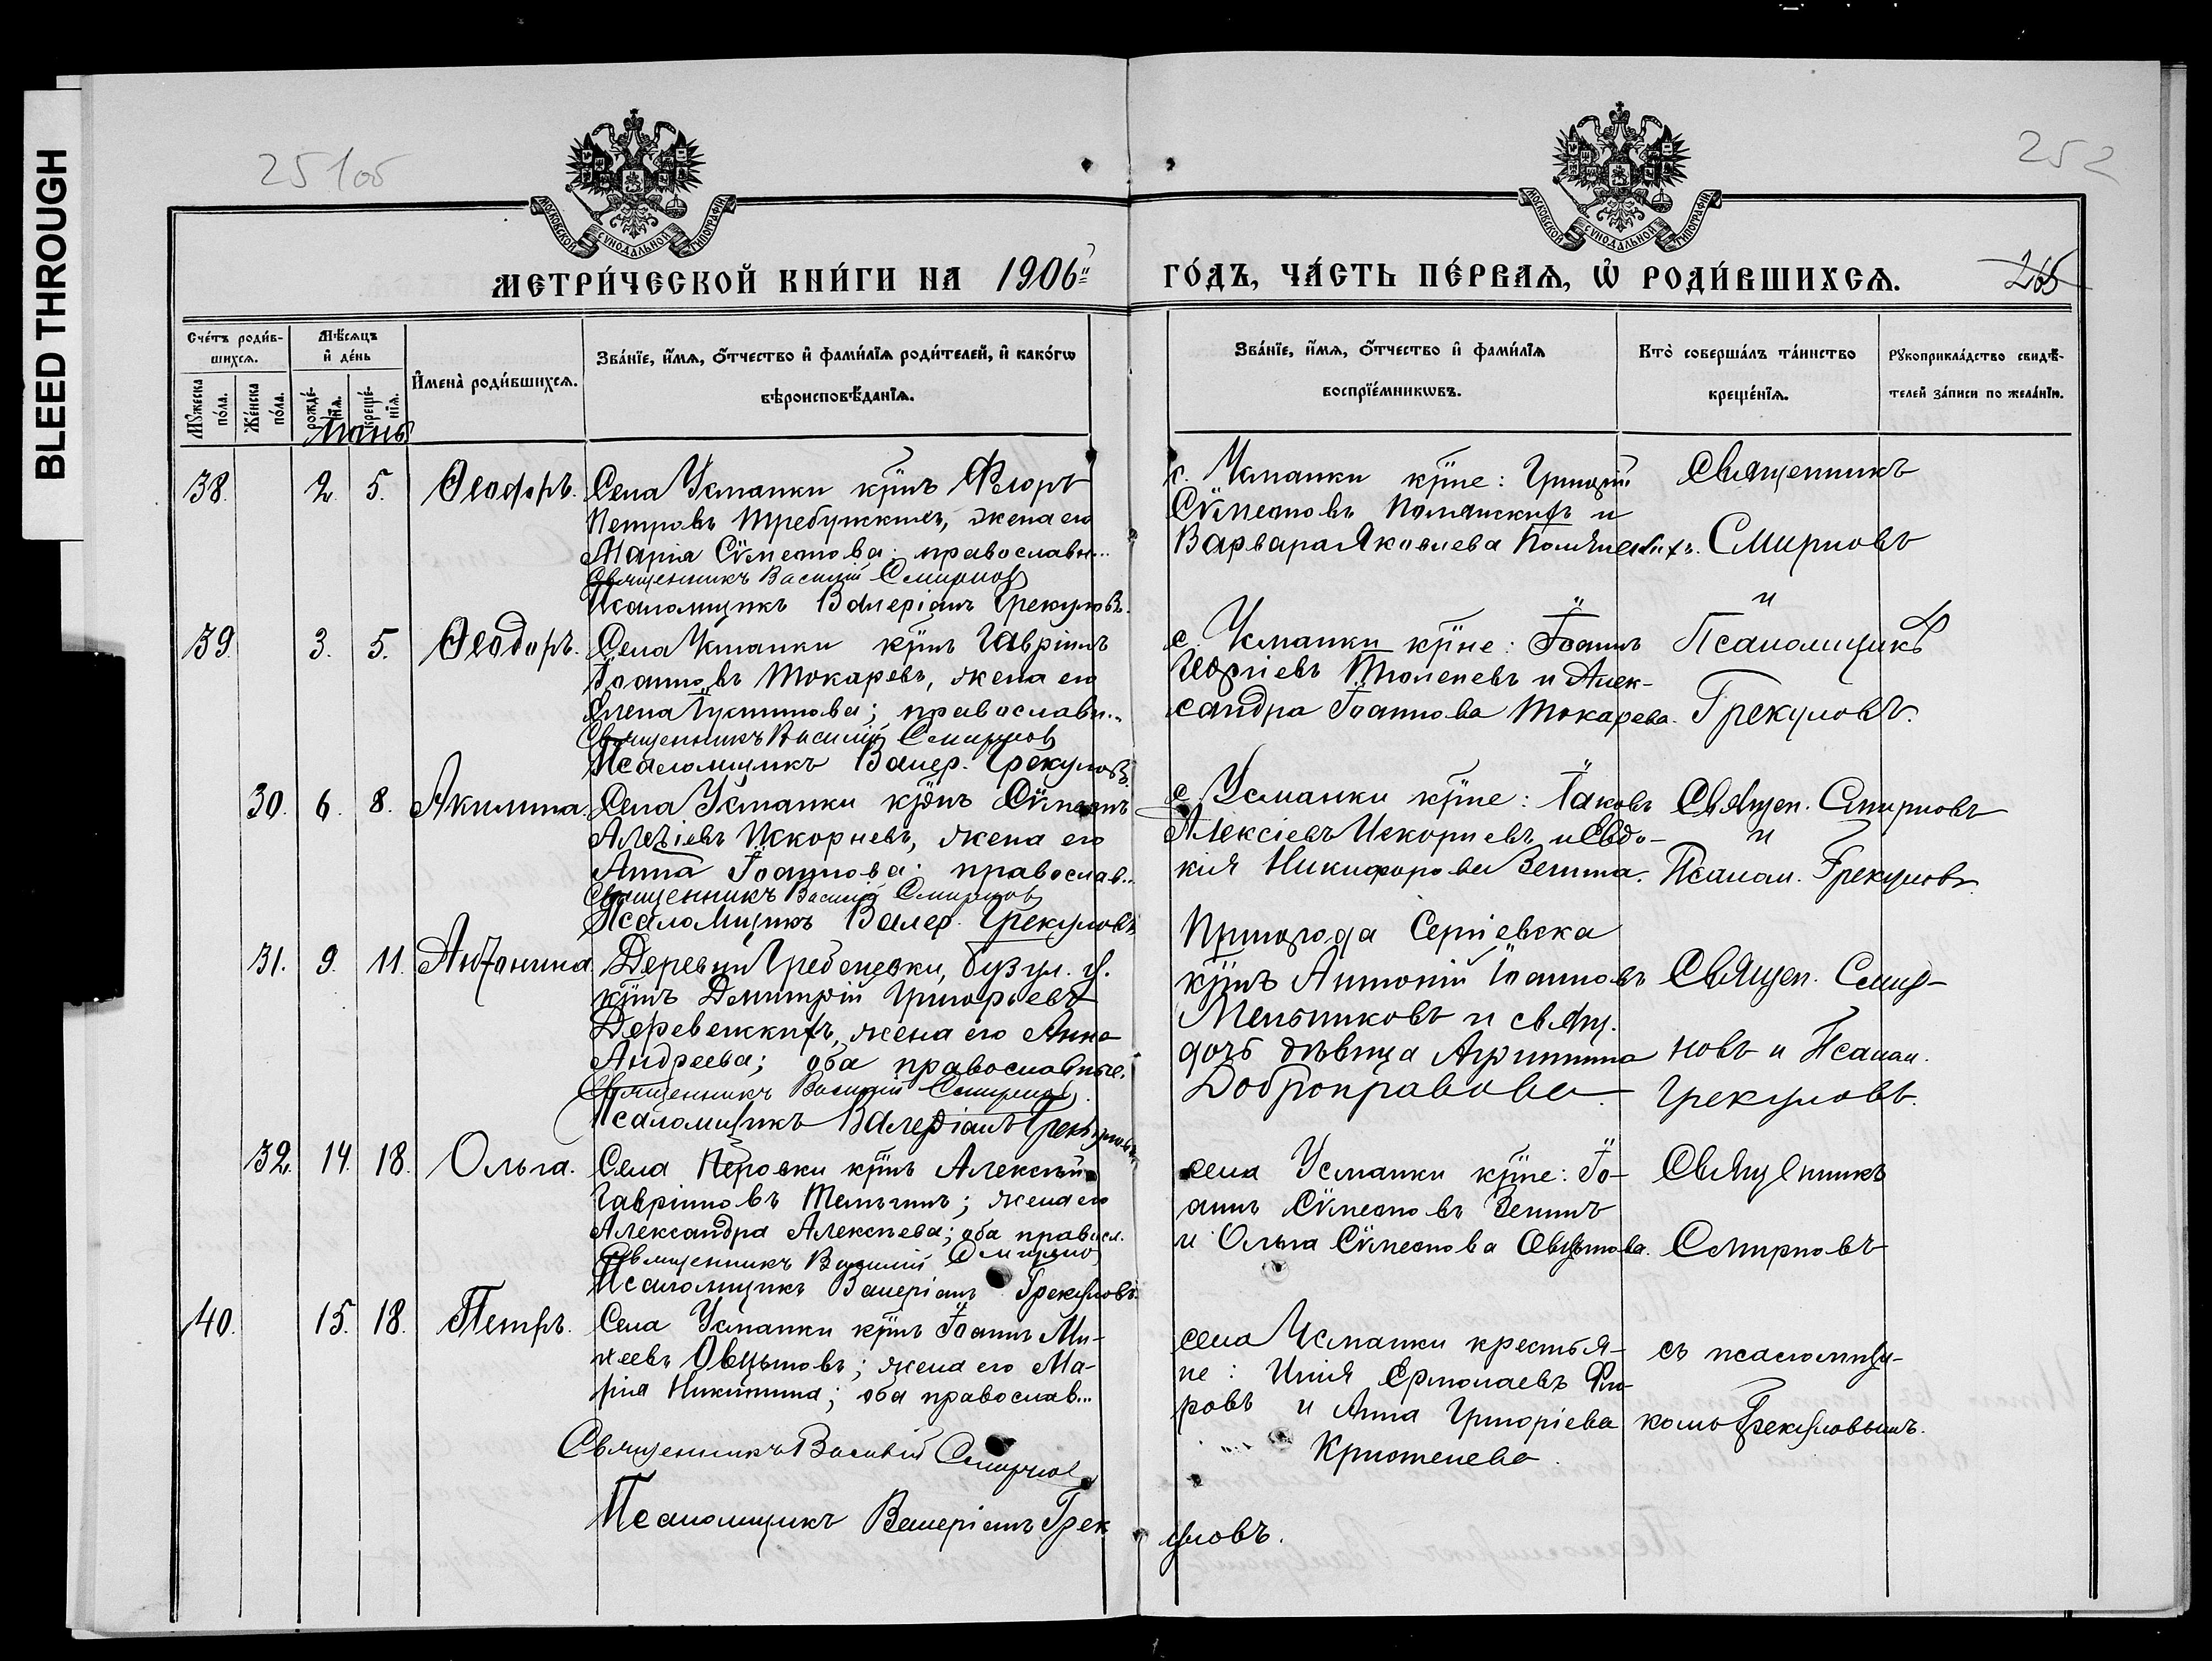 BLEED THROUGH
251об
252
МОСКОВСКОЙ СѴНОДАЛЬНОЙ ТИПОГРАФІИ
МОСКОВСКОЙ СѴНОДАЛЬНОЙ ТИПОГРАФІИ
МЕТРИ́ЧЕСКОЙ КНИ́ГИ НА 1906й
ГО́ДЪ, ЧА́СТЬ ПЕ́РВАѦ, Ѡ҆ РОДИ́ВШИХСѦ.
Сче́тъ роди́в-
шихсѧ.
Мѹ́жеска
по́ла.
Же́нска
по́ла.
Мѣ́сѧцъ
и҆ де́нь
рожде́-
нїѧ.
креще́-
нїѧ.
Іюнь
И҆мена̀ роди́вшихсѧ.
Зва́нїе, и҆́мѧ, ѻ҆́тчество и҆ фами́лїѧ роди́телей, и҆ како́гѡ
вѣроисповѣ́данїѧ.
Зва́нїе, и҆́мѧ, ѻ҆́тчество и҆ фами́лїѧ
воспрїе́мникѡвъ.
Кто̀ соверша́лъ та́инство
креще́нїѧ.
Рѹкоприкла́дство свидѣ́-
телей за́писи по жела́нїю.
38. 2. 5. Ѳеодоръ.
Села Усманки крⷭ҇нъ Флоръ
Петровъ Требунскихъ, жена его
Марія Сѵмеонова; православн...
Священникъ Василій Смирновъ
Псаломщикъ Валеріанъ Грекуловъ.
с. Усманки крⷭ҇не: Григорій
Сѵмеоновъ Полянскихъ и
Варвара Яковлева Полянскихъ.
Священникъ
Смирновъ
и
39. 3. 5. Ѳеодоръ.
Села Усманки крⷭ҇нъ Гавріилъ
Іоанновъ Токаревъ, жена его
Елена Іустинова; православн...
Священникъ Василій Смирновъ
Псаломщикъ Валер. Грекуловъ
с. Усманки крⷭ҇не: Іоаннъ
Георгіевъ Тюленевъ и Алек-
сандра Іоаннова Токарева.
Псаломщикъ
Грекуловъ.
30. 6. 8. Акилина.
Села Усманки крⷭ҇нъ Сѵмеонъ
Алексіевъ Искорневъ, жена его
Анна Іоаннова; православ...
Священникъ Василій Смирновъ
Псаломщикъ Валер. Грекуловъ
с. Усманки крⷭ҇не: Іаковъ
Алексіевъ Искорневъ и Евдо-
кія Никифорова Зенина.
Священ. Смирновъ
и
Псалом. Грекуловъ.
31. 9. 11. Антонина.
Деревни Гребеневки, бузул. у.
крⷭ҇нъ Димитрій Григорьевъ
Деревенскихъ, жена его Анна
Андреева; оба православные.
Священникъ Василій Смирновъ.
Псаломщикъ Валеріанъ Грекуловъ.
Пригорода Сергіевска
крⷭ҇нъ Антоній Іоанновъ
Мельниковъ и свящ.
дочь дѣвица Агриппина
Добронравова.
Священ. Смир-
новъ и Псалом.
Грекуловъ.
32. 14. 18. Ольга.
Села Перовки крⷭ҇нъ Алексѣй
Гавріиловъ; жена его
Александра Алексѣева; оба правосл.
Священникъ Василій Смирновъ
Псаломщикъ Валеріанъ Грекуловъ.
села Усманки крⷭ҇не: Іо-
аннъ Сѵмеоновъ Зенинъ
и Ольга Сѵмеонова Овцынова.
Священникъ
Смирновъ
40. 15. 18. Петръ.
Села Усманки крⷭ҇нъ Іоаннъ Ми-
хеевъ Овцыновъ; жена его Ма-
рія Никитина; оба православ...
Священникъ Василій Смирновъ
Псаломщикъ Валеріанъ Грек
уловъ.
села Усманки крестья-
не: Илія Ермолаевъ Фло-
ровъ и Анна Григоріева
съ псаломщи-
комъ Грекуловымъ.